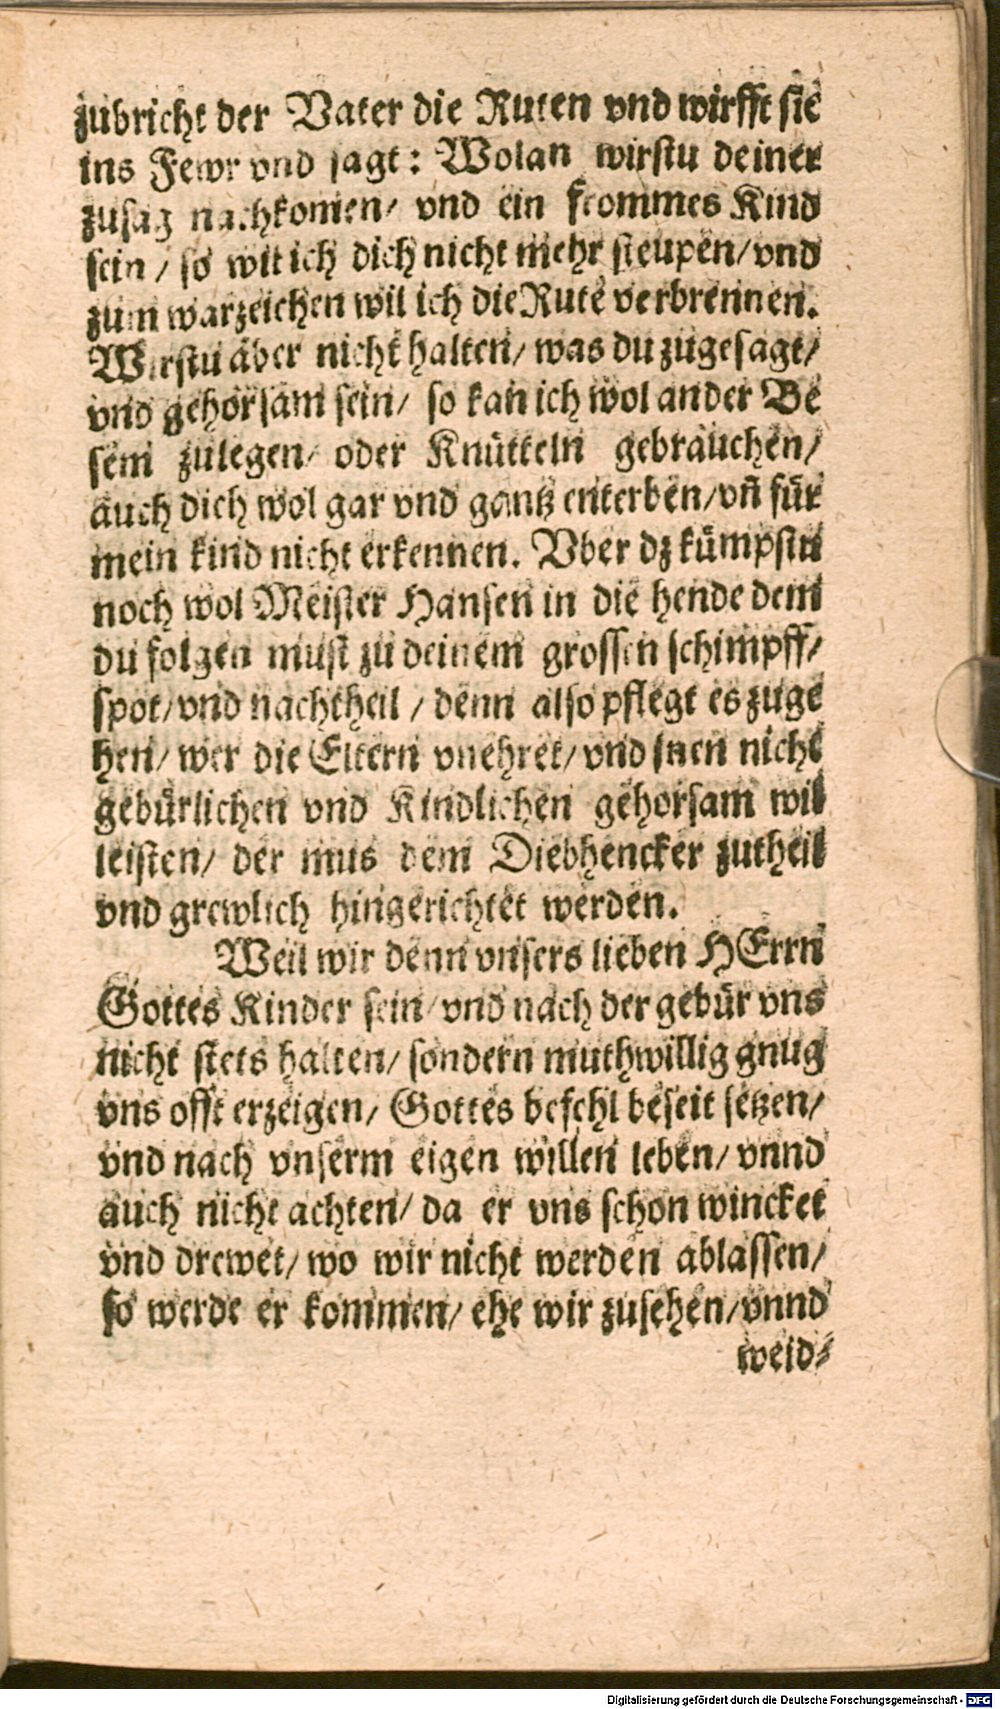 zubricht der Vater die Ruten vnd wirfft sie
ins Fewr vnd sagt: Wolan wirstu deiner
zusag nachkomen/ vnd ein frommes Kind
sein / so wil ich dich nicht mehr steupen/ vnd
zum warzeichen wil ich die Rute verbrennen.
Wirstu aber nicht halten/ was du zugesagt/
vnd gehorsam sein/ so kan ich wol ander Be
sem zulegen/ oder Knütteln gebrauchen/
auch dich wol gar vnd gantz enterben/ vñ für
mein kind nicht erkennen. Vber dz kümpstu
noch wol Meister Hansen in die hende dem
du folgen must zu deinem grossen schimpff/
spot/ vnd nachtheil / denn also pflegt es zuge
hen/ wer die Eltern vnehret/ vnd jnen nicht
gebürlichen vnd Kindlichen gehorsam wil
leisten/ der mus dem Diebhencker zutheil
vnd grewlich hingerichtet werden.
Weil wir denn vnsers lieben HErrn
Gottes Kinder sein/ vnd nach der gebür vns
nicht stets halten/ sondern muthwillig gnug
vns offt erzeigen/ Gottes befehl beseit setzen/
vnd nach vnserm eigen willen leben/ vnnd
auch nicht achten/ da er vns schon wincket
vnd drewet/ wo wir nicht werden ablassen/
so werde er kommen/ ehe wir zusehen/ vnnd
weid⸗
Digitalisierung gefördert durch die Deutsche Forschungsgemeinschaft - DFG